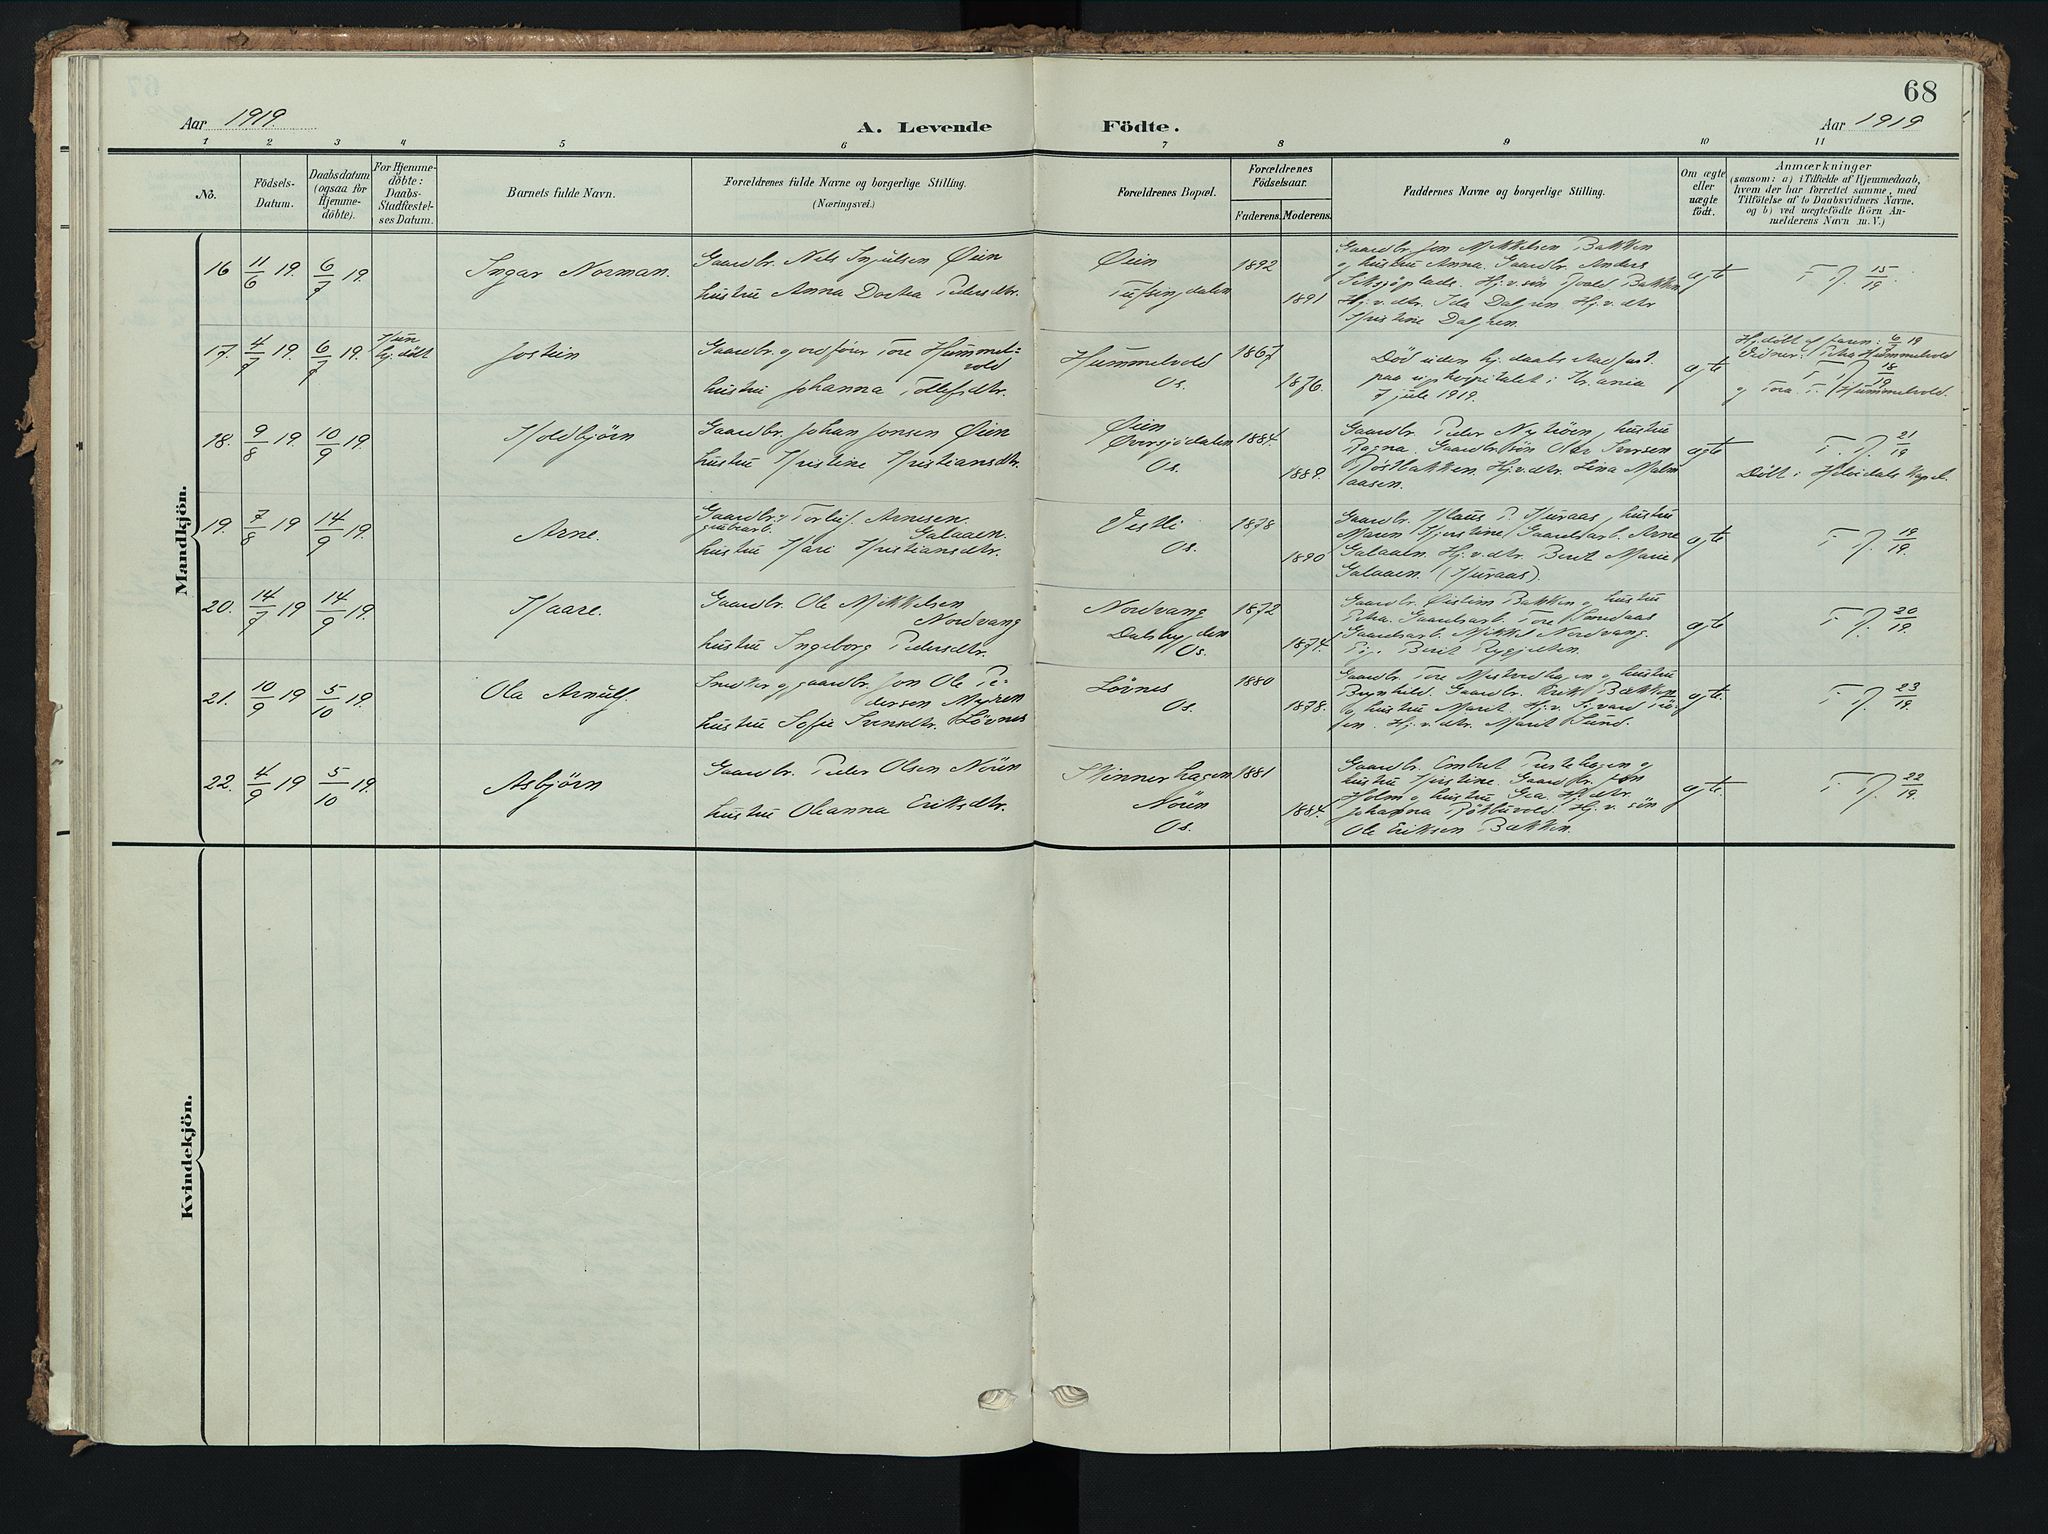 68
Aar 1919
A. Levende Födte.
Aar 1919
1 2 3 4 5 6 7 8 9 10 11
No.
Födsels-
Datum.
Daabsdatum
(ogsaa for
Hjemme-
döbte).
For Hjemme-
döbte:
Daabs-
Stadfæstel-
ses Datum.
Barnets fulde Navn.
Forældrenes fulde Navne og borgerlige Stilling.
(Næringsvei.)
Forældrenes Bopæl.
Forældrenes
Födselsaar.
Faderens. Moderens.
Faddernes Navne og borgerlige Stilling.
Om ægte
eller
uægte
födt.
Anmærkninger
(saasom: a) i Tilfælde af Hjemmedaab,
hvem der har forrettet samme, med
Tilföielse af to Daabsvidners Navne.
og b) ved uægtefödte Börn An-
melderens Navn m. V.)
Mandkjön.
16 11/6 19. 6/7 19. Ingar Norman.
Gaardbr. Nils Ingulsen Øien
hustru Anna Dortea Pedersdtr.
Øien
Tufsingdalen
1892
1891
Gaardbr. Jon Mikkelsen Bakken
og hustru Anna. Gaardbr. Anders
Hj.v. dtr. Ida Dalgren Hj.v. dtr
Kristine Dalgren.
ægte
F. N. 15/19
17. 4/7 19. 6/7 19. Kun
hj. döbt
Jostein
Gaardbr. og ordförer Tore Hummel=
vold
hustru Johanna Tollefsdtr.
Hummelvold
Os.
1867
1876.
Död uden hj. daabs stadfæst.
paa rigshospitalet i Kr.ania
7 juli 1919.
ægte
Hj. döbt af faren: 6/7 19
Vidner: Petra Hummelvold
F. N. 18/19
og Tora T. Hummelvold.
18. 9/8 19. 10/9 19. Holdbjörn
Gaardbr. Johan Jonsen Øien
hustru Kristine Kristiansdtr.
Øien
Øversjödalen
Os.
1884.
1889.
Gaardbr. Peder Nyöien, hustru
Ragna. Gaardbr.sön Olav Iversen
Röstbakken. Hj.v. dtr. Lina Malm
aasen.
ægte
F. N. 21/19
Döbt i Holöidals Kapel.
19. 7/8 19 14/9 19. Arne.
Gaardbr. og Torleif Arnesen
grubearb. Galaaen.
hustru Kari Kristiansdtr.
Vestli
Os.
1878
1890
Gaardbr. Klaus P. Kuraas, hustru
Maren Kjerstine, Gaardsarb. Arne
Galaaen. Hj.v. dtr. Berit Marie
Galaaen. (Kuraas).
ægte
F. N. 19/19.
20. 14/7 19 14/9 19. Kaare.
Gaardbr. Ole Mikkelsen
Nordvang
hustru Ingeborg Pedersdtr.
Nordvang
Dalsbygden
Os.
1872
1874.
Gaardbr. Øistein Bakken og hustru
Petra. Gaardsarb. Tore Smedaas
Gaardsarb. Mikkel Nordvang.
Pige Berit
ægte
F. N. 20/19.
21. 10/9 19 5/10 19. Ola Arnulf.
Snedker og gaardbr. Jon Ole Pe-
dersen Myren
hustru Sofie Svensdtr. Lövnes
Lövnes
Os.
1880
1878.
Gaardbr. Tore og hustru
Brynhild. Gaardbr. Erik Bakken
og hustru Marit. Hj.v. Sivard
Hj.v. dtr. Marit Sund.
ægte.
F. N. 23/19.
22. 4/9 19 5/10 19. Asbjörn
Gaardbr. Peder Olsen Nöen
hustru Oleanna Eriksdtr.
Skinnerhagen
Nöen
Os.
1881
1884.
Gaardbr. Embret Prestehagen og
hustru Kirstine. Gaardbr. Jon
Holm og hustru Gea. Hj. dtr.
Johanna Hj.v. sön
Ole Eriksen Bakken.
ægte.
F. N. 22/19.
Kvindekjön.